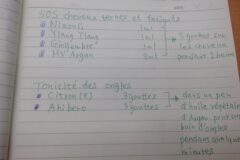 SOS cheveux ternes et fatigués
Niaouli 1ml
Ylang Ylang 1ml
Gingembre 1ml
HV Argan 2ml
5 gouttes
les cheveux
pendant 1 heure
Tonicité des ongles
Citron (E) 3 gouttes
3 gouttes
dans un peu
d'huile végétale
d'Argan pour un
bain d'ongles
pendant quelques
minutes